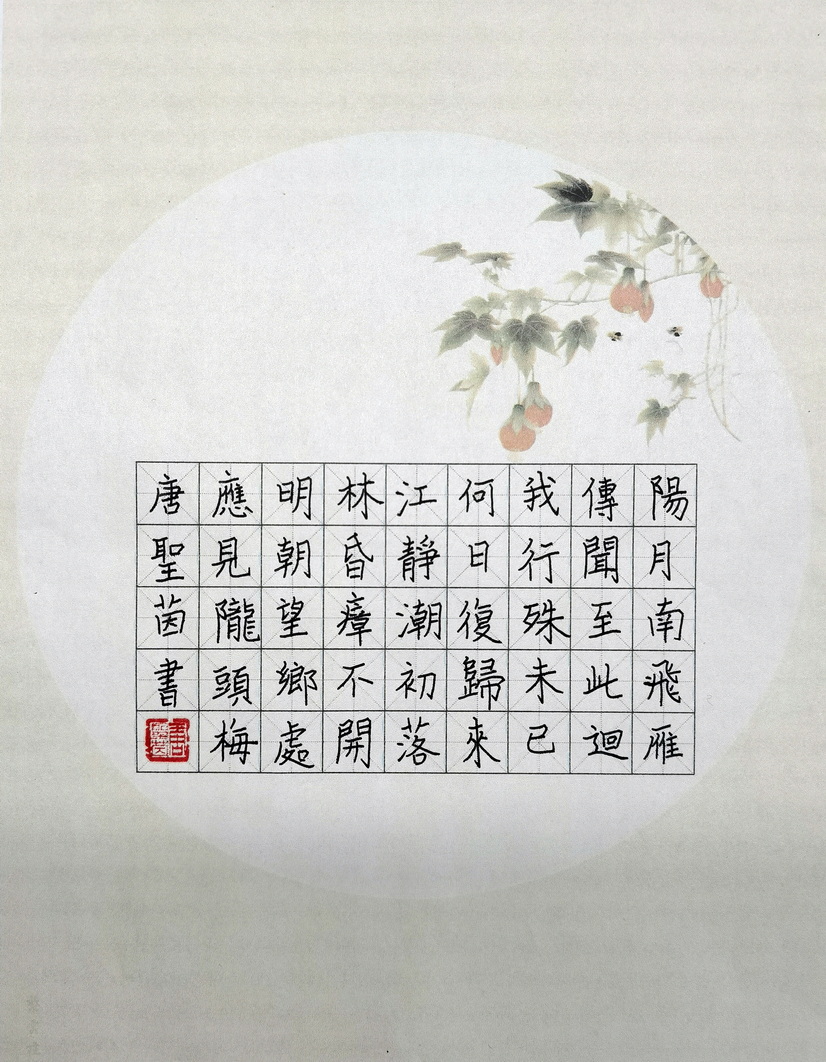 陽月南飛雁
傳聞至此迴
我行殊未已
何日復歸來
江靜潮初落
林昏瘴不開
明朝望鄉處
應見隴頭梅
唐聖茵書